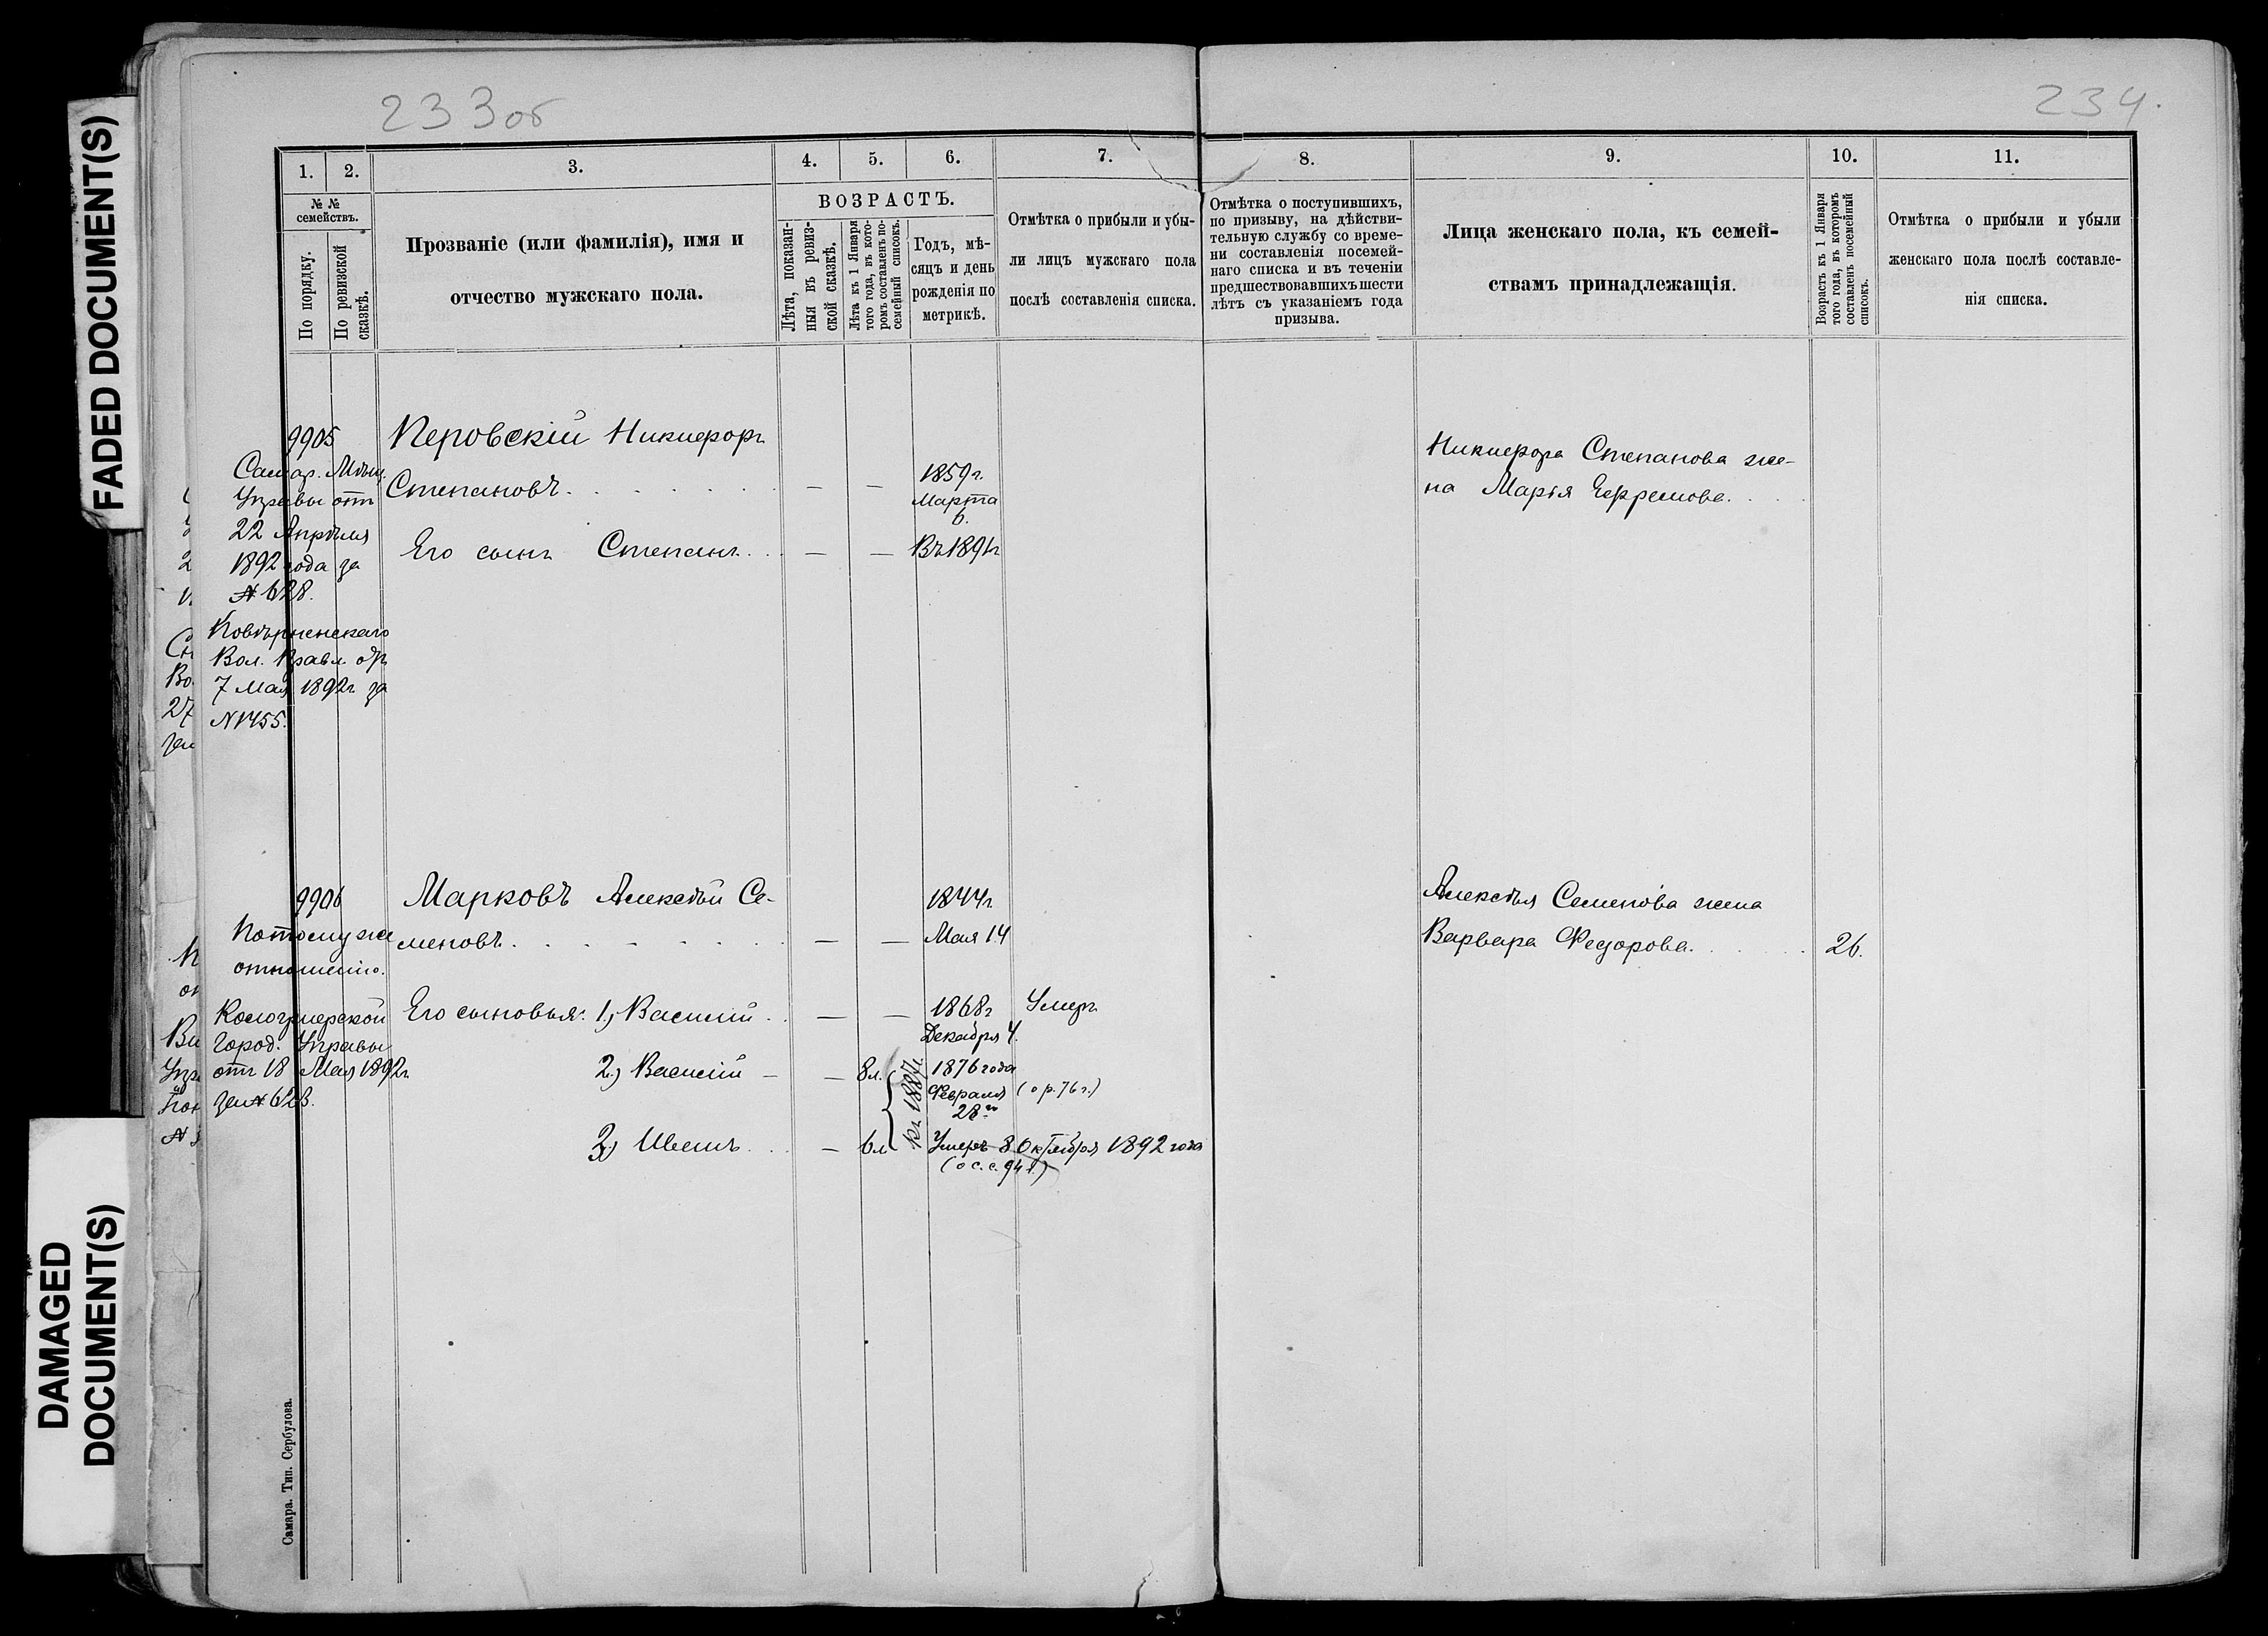 FADED DOCUMENT(S)
DAMAGED
DOCUMENT(S)
233об
234.
1.
2.
3.
4.
5.
6.
7.
8.
9.
10.
11.
№ №
семействъ.
По порядку.
По ревизской
сказкѣ.
Прозваніе (или фамилія), имя и
отчество мужскаго пола.
ВОЗРАСТЪ.
Лѣта, показан-
ныя въ ревиз-
ской сказкѣ.
Лѣта къ 1 Января
того года, въ кото-
ромъ составленъ по-
семейный списокъ.
Годъ, мѣ-
сяцъ и день
рожденія по
метрикѣ.
Отмѣтка о прибыли и убы-
ли лицъ мужскаго пола
послѣ составленія списка.
Отмѣтка о поступившихъ,
по призыву, на дѣйстви-
тельную службу со време-
ни составленія посемей-
наго списка и въ теченіи
предшествовавшихъ шести
лѣтъ съ указаніемъ года
призыва.
Лица женскаго пола, къ семей-
ствамъ принадлежащія.
Возрастъ къ 1 Января
того года, въ которомъ
составленъ посемейный
списокъ.
Отмѣтка о прибыли и убыли
женскаго пола послѣ составле-
нія списка.
9905
Самар. Мѣщ.
Управы отъ
22 Апрѣля
1892 года за
№ 628.
Вол. Правл. отъ
7 Мая 1892г за
N1455.
Перовскій Никифоръ
Степановъ.
1859г.
Марта
6.
Его сынъ Степанъ.
Въ 1891г
Никифора Степанова же-
на Марья Ефремова.
9906
По тому же
отношенію.
Кологривской
Город. Управы
отъ 18 Мая 1892г.
за № 623.
Марковъ Алексѣй Се-
меновъ.
1844г.
Мая 14
Его сыновья: 1.) Василій
1868г
Декабря 4.
Умеръ
2.) Василій
8л.
къ 1887г.
1876 года
Февраля
28го
(о р. 76 г.)
3) Иванъ
6л
Умеръ 8 Октября 1892 года
(о с. с. 94 г.)
Алексѣя Семенова жена
Варвара Федорова.
26.
Самара. Тип. Сербулова.